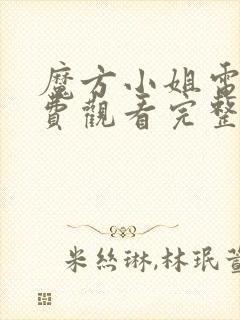 魔方小姐電
費觀看完整
米絲琳,林珉萱